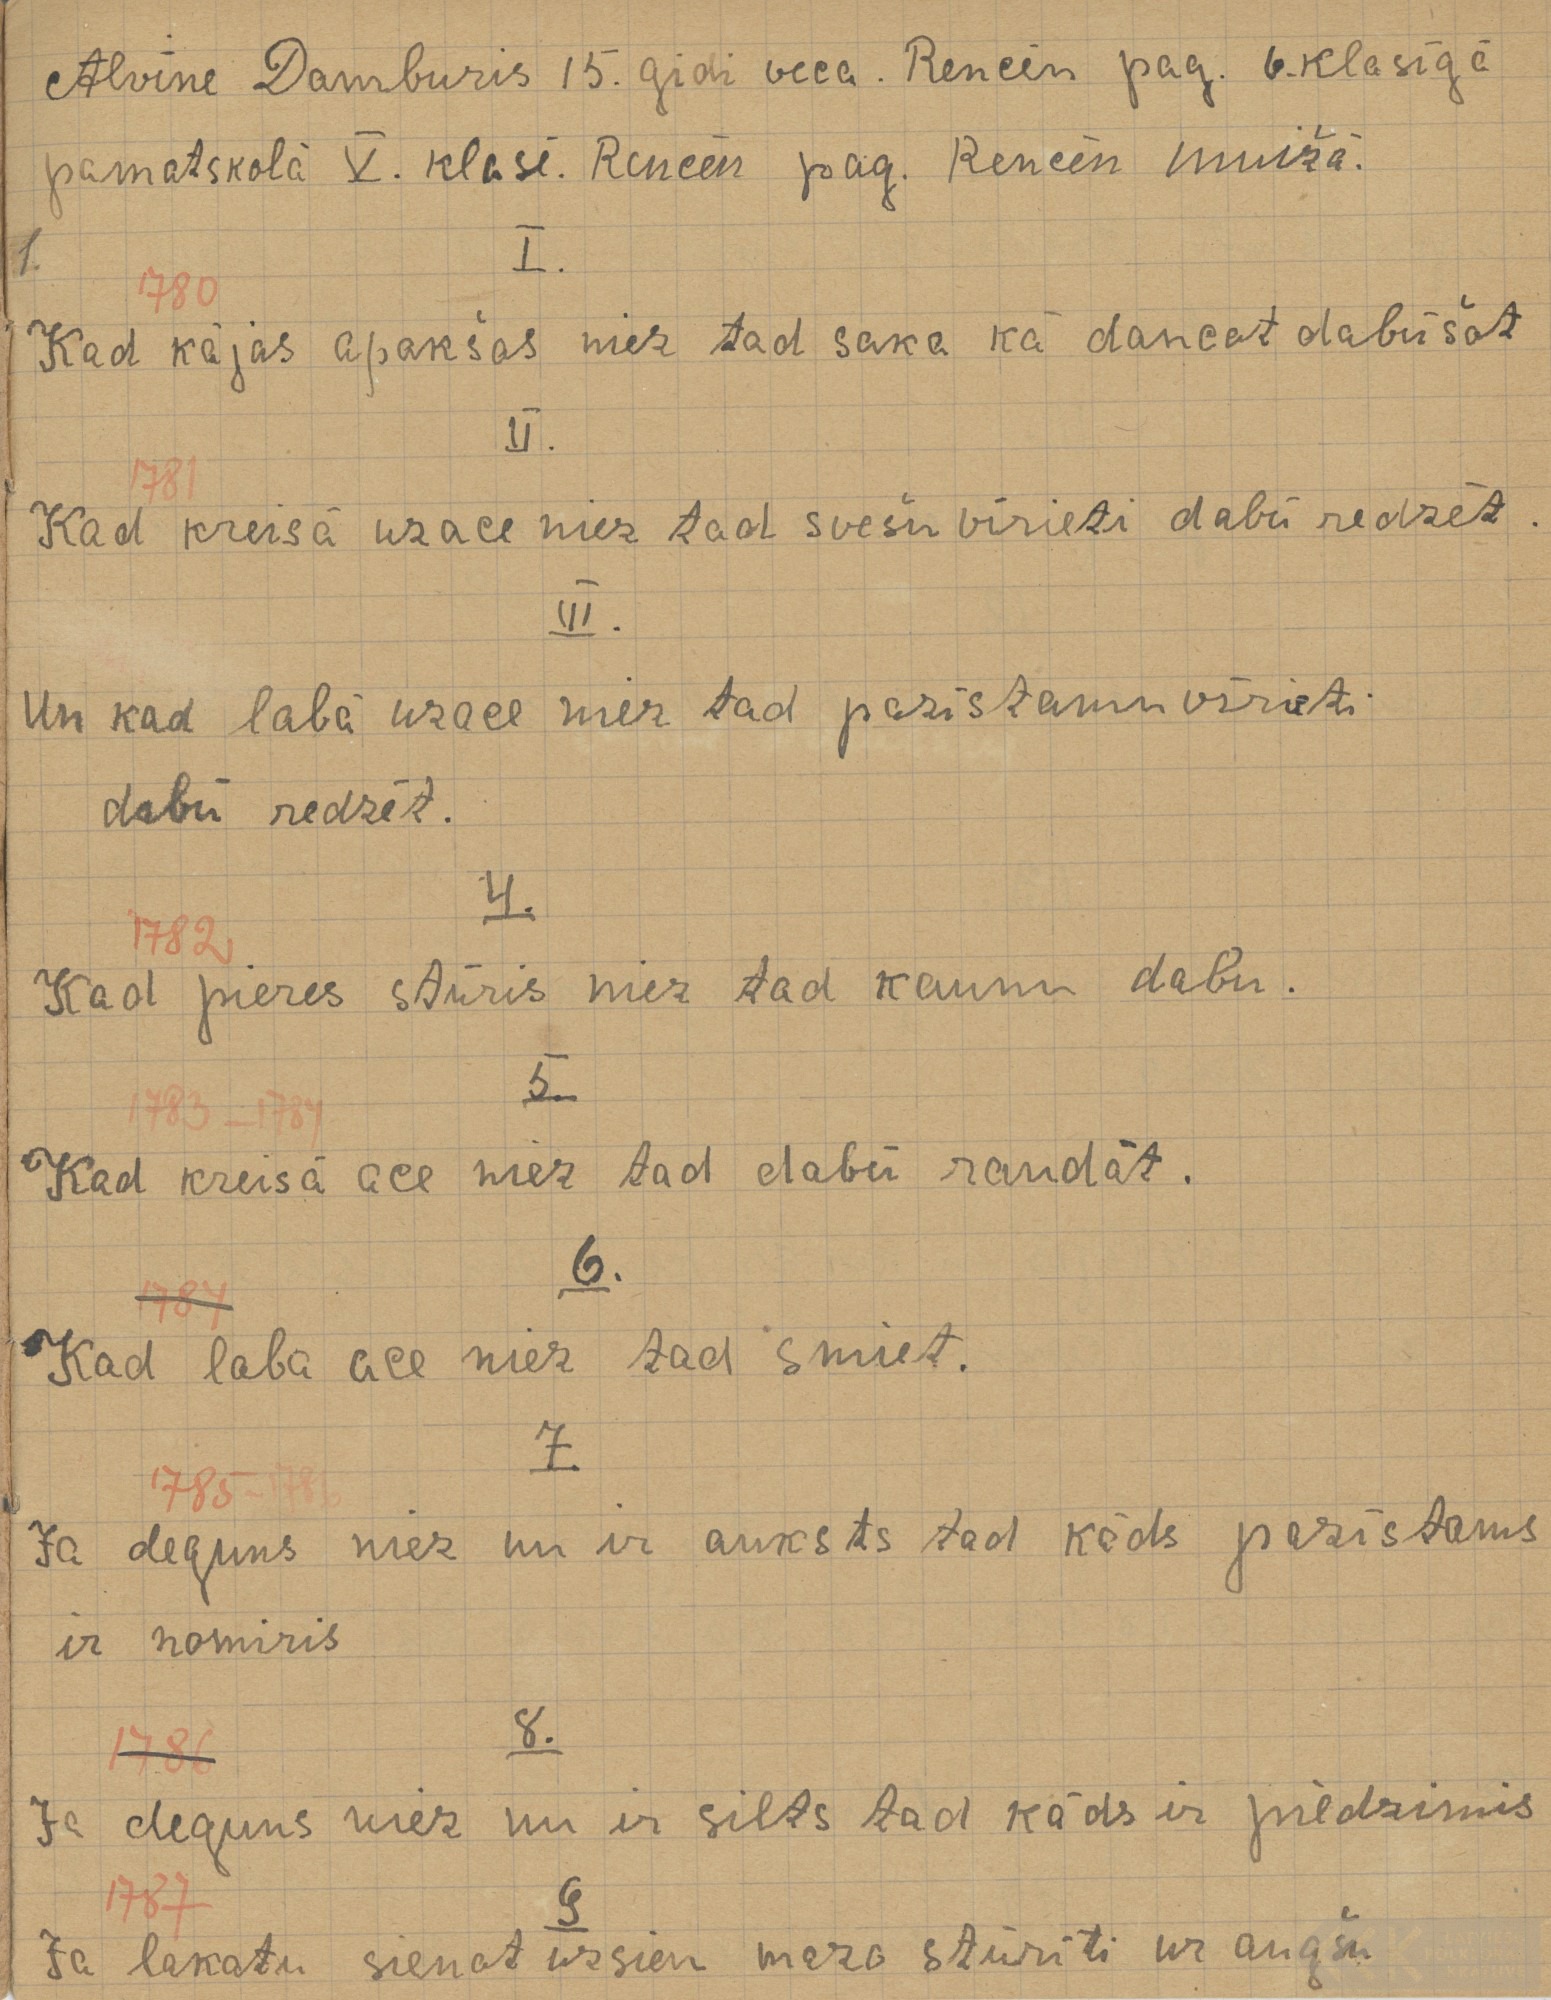 Alvine Damburis 15. gidi veca. Rencēn pag. 6. klasīgā
pamatskolā V. klasē. Rencēn pag. Rencēn muižā.
1.
I.
1780
Kad kājas apakšas niez tad saka kā dancat dabūšot
II.
1781
Kad kreisā uzace niez tad svešu vīrieti dabū redzēt.
III.
Un kad labā uzace niez tad pazīstamu vīrieti
dabū redzēt.
4.
1782
Kad pieres stūris niez tad kaunu dabu.
5.
1783–1784
Kad kreisā ace niez tad dabū raudāt.
6.
1784
Kad laba ace niez tad smiet.
7
1785–1786
Ja deguns niez un ir auksts tad kāds pazīstams
ir nomiris
8.
1786
Ja deguns niez un ir silts tad kāds ir piedzimis
1787
9
Ja lakatu sienot uzsien mazo stūrīti uz augšu